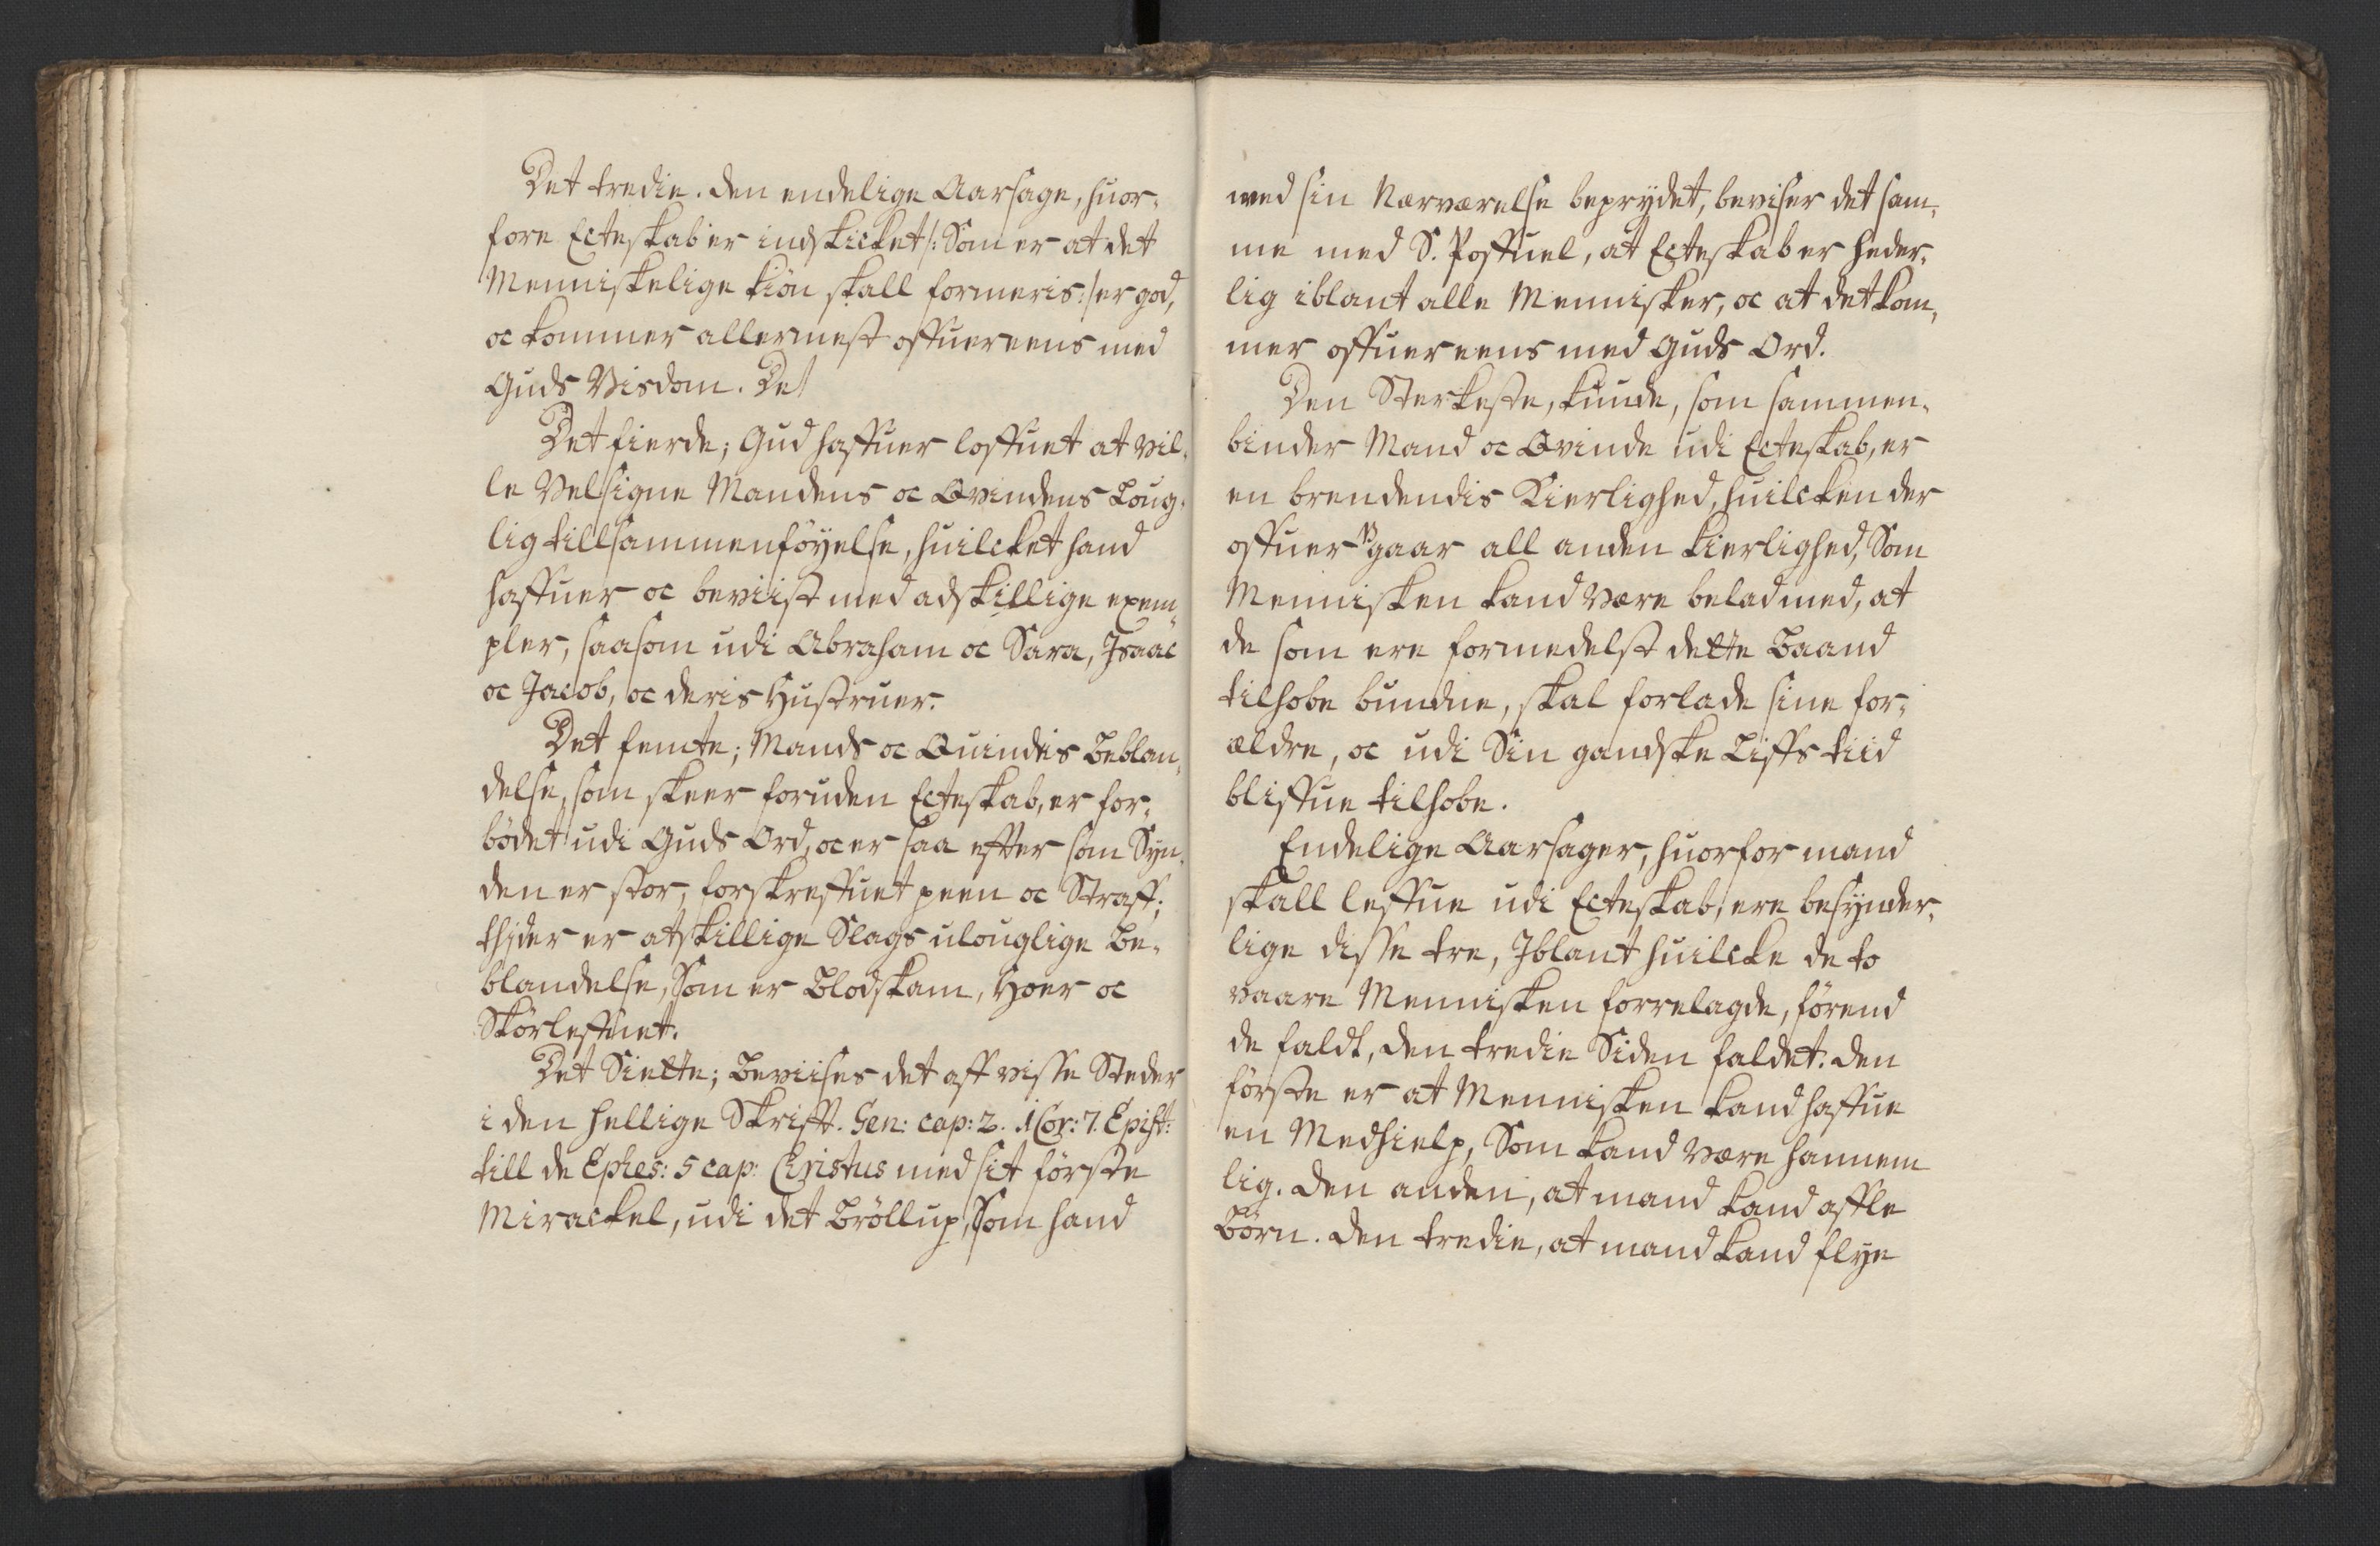 Det tredie. den endelige Aarsage, huor-
fore Ecteskab er indskicket /: Som er at det
Menniskelige kiön skall formeris :/ er god,
oc kommer allermest offuereens med
Guds Visdom. Det
Det fierde; Gud haffuer loffuet at vil-
le Velsigne Mandens oc Qvindens Loug-
lig tillsammenföyelse, huilcket hand
haffuer oc beviist med adskillige exem-
pler, saasom udi Abraham oc Sara, Isaac
oc Jacob, oc deris Hustruer.
Det femte; Mands oc Quindis Beblan-
delse, som skeer foruden Ecteskab, er for-
bödet udi Guds Ord, oc er saa effter som Syn-
den er stor, forskreffuet peen oc Straff;
thj der er atskillige Slags ulouglige Be-
blandelse, Som er Blodskam, Hoer oc
Skörleffnet.
Det Siette; Beviises det aff visse Steder
i den hellige Skrifft. Gen: cap: 2. 1 Cor: 7. Epist:
till de Ephes: 5 cap: Christus med sit förste
Mirackel, udi det Bröllup, Som hand
med sin Nærværelse beprydet, beviser det sam-
me med S. Poffuel, at Ecteskab er heder-
lig iblant alle Mennisker, oc at det kom-
mer offuereens med Guds Ord.
Den Sterkeste, knude, som sammen-
binder Mand oc Qvinde udi Ecteskab, er
en brendendis Kierlighed, huilcken der
offuer gaar all anden kierlighed, Som
Mennisken kand være belad med, at
de som ere formedelst dette Baand
tilhobe bundne, skal forlade sine for-
ældre, oc udi Sin gandske Liffs tiid
bliffue tilhobe.
Endelige Aarsager, huorfor mand
skall leffue udi Ecteskab, ere besynder-
lige disse tre, Iblant huilcke de to
vaare Mennisken forrelagde, förend
de faldt, den tredie Siden faldet. den
förste er at Mennisken kand haffue
en Medhielp, Som kand være hannem
lig. den anden, at mand kand affle
Börn. den tredie, at mand kand flye